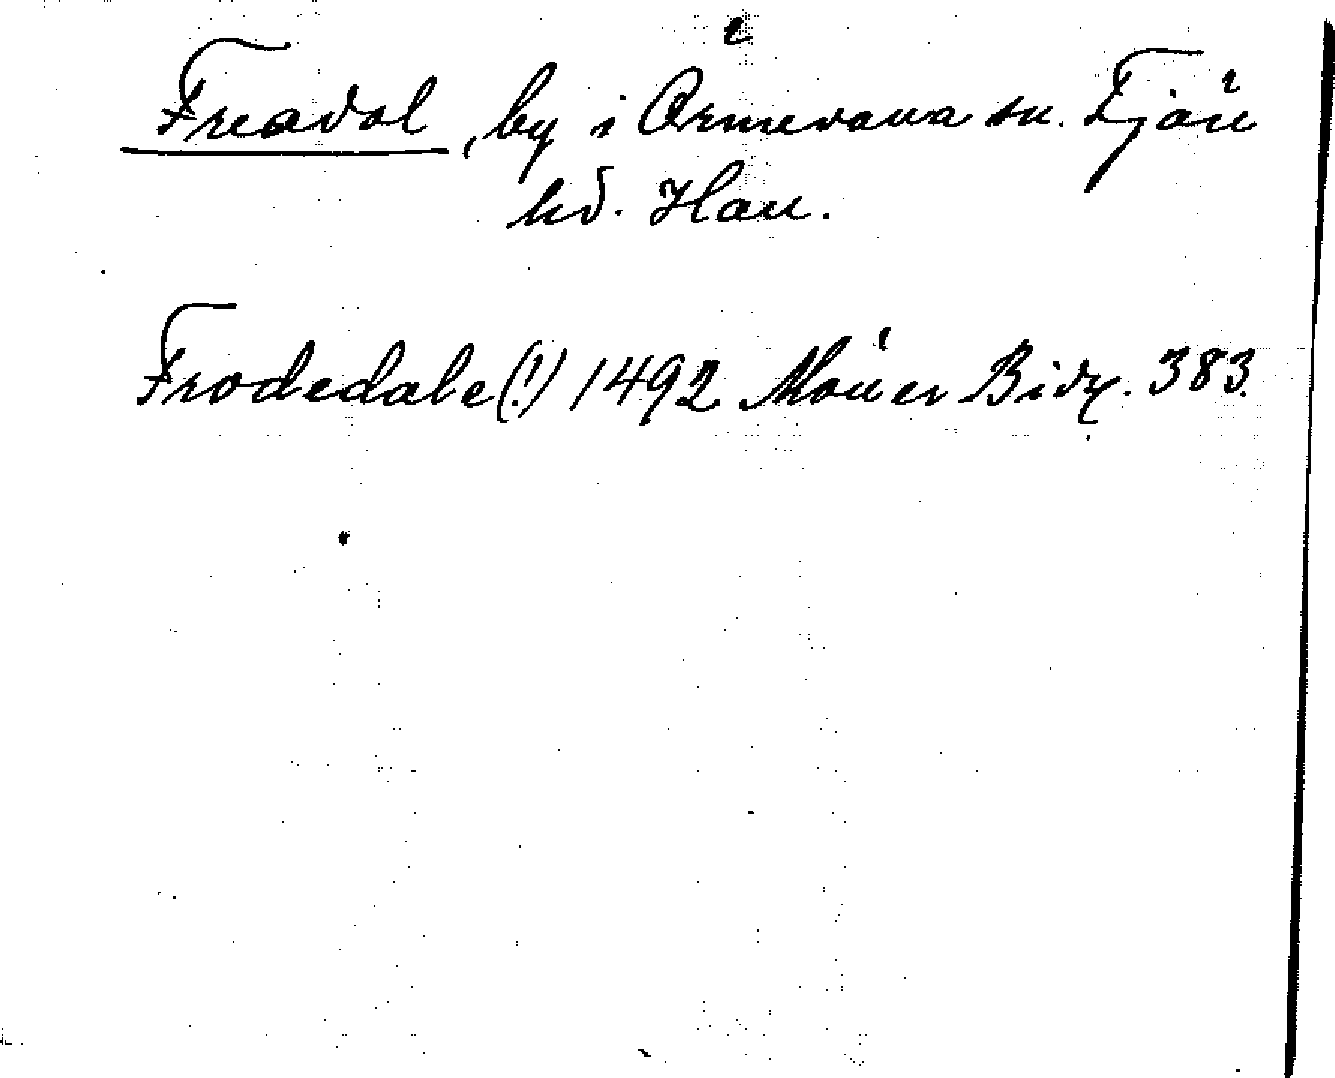 Freadal, by i Ormevana sn. Tjän
hd. Han.
Frodedale(!) 1492 Bidr. 383.